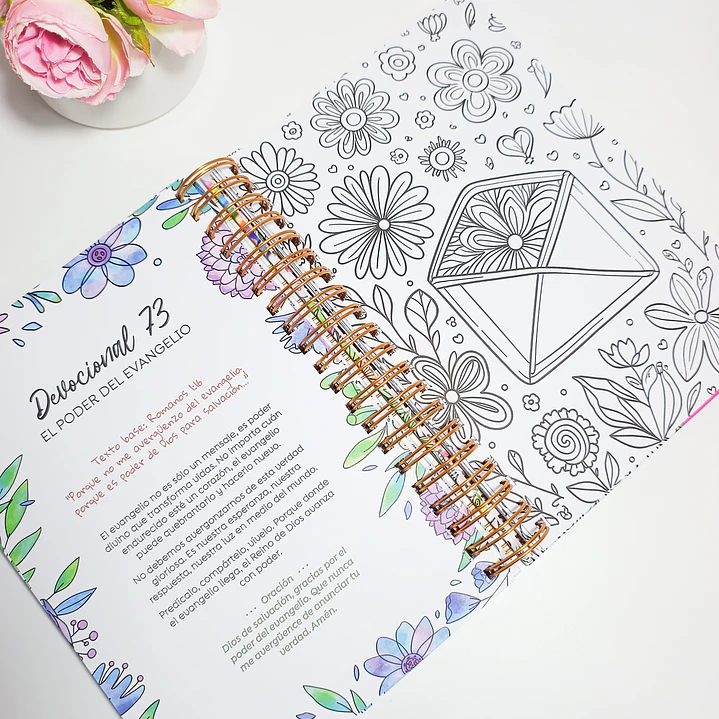 Devocional 73
EL PODER DEL EVANGELIO
Texto base: Romanos 1:16
"Porque no me avergüenzo del evangelio,
porque es poder de Dios para salvación..."
El evangelio no es sólo un mensaje, es poder
divino que transforma vidas. No importa cuán
endurecido esté un corazón, el evangelio
puede quebrantarlo y hacerlo nuevo.
No debemos avergonzarnos de esta verdad
gloriosa. Es nuestra esperanza, nuestra
respuesta, nuestra luz en medio del mundo.
Predícalo, compártelo, vívelo. Porque donde
el evangelio llega, el Reino de Dios avanza
con poder.
... Oración ...
Dios de salvación, gracias por el
poder del evangelio. Que nunca
me avergüence de anunciar tu
verdad. Amén.